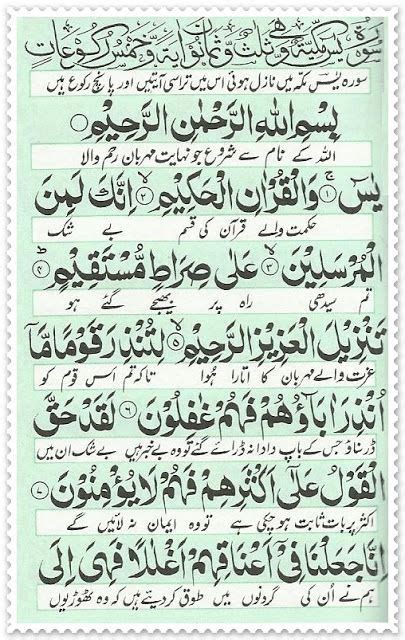 سورة يس مكية وهي ثلث وثمانون اية وخمس ركوعات
سورہ یٰسٓ مکہ میں نازل ہوئی اس میں تراسی آیتیں اور پانچ رکوع ہیں
بِسْمِ اللهِ الرَّحْمٰنِ الرَّحِيْمِ
اللہ کے نام سے شروع جو نہایت مہربان رحم والا
يٰسٓ ۚ﴿۱﴾ وَالْقُرْاٰنِ الْحَكِيْمِ ۙ﴿۲﴾ اِنَّكَ لَمِنَ
حکمت والے قرآن کی قسم بے شک
الْمُرْسَلِيْنَ ۙ﴿۳﴾ عَلٰى صِرَاطٍ مُّسْتَقِيْمٍ ؕ﴿۴﴾
تم سیدھی راہ پر بھیجے گئے ہو
تَنْزِيْلَ الْعَزِيْزِ الرَّحِيْمِ ۙ﴿۵﴾ لِتُنْذِرَ قَوْمًا مَّآ
عزت والے مہربان کا اتارا ہوا تاکہ تم اس قوم کو
اُنْذِرَ اٰبَآؤُهُمْ فَهُمْ غٰفِلُوْنَ ﴿۶﴾ لَقَدْ حَقَّ
ڈر سناؤ جس کے باپ دادا نہ ڈرائے گئے تو وہ بے خبر ہیں بے شک ان میں
الْقَوْلُ عَلٰٓى اَكْثَرِهِمْ فَهُمْ لَا يُؤْمِنُوْنَ ﴿۷﴾
اکثر پر بات ثابت ہو چکی ہے تو وہ ایمان نہ لائیں گے
اِنَّا جَعَلْنَا فِيْٓ اَعْنَاقِهِمْ اَغْلٰلًا فَهِيَ اِلَى
ہم نے اُن کی گردنوں میں طوق کر دیئے ہیں کہ وہ ٹھوڑیوں